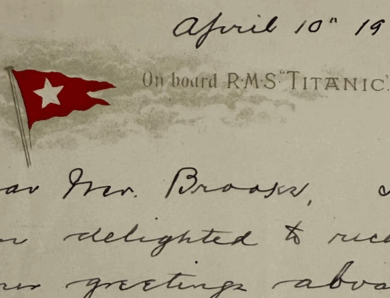 April 10" 19
On board R·M·S·"TITANIC".
ar Mr. Brooks,
delighted to rec
greetings aboa